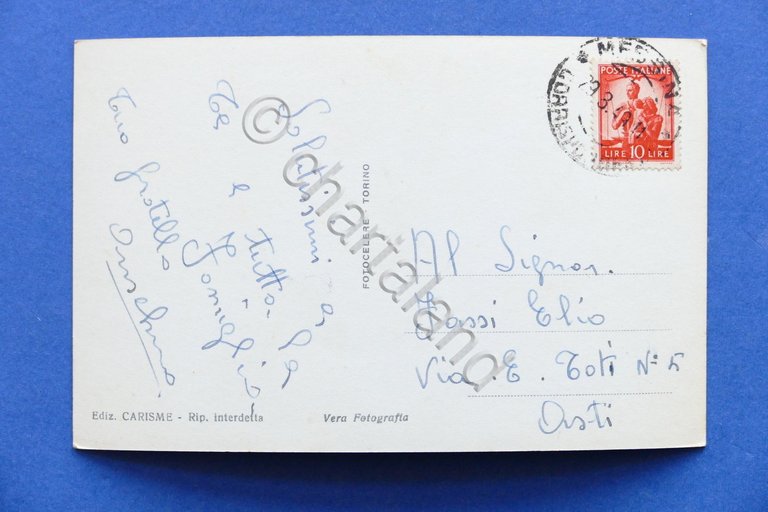 Salutissimi a
te e tutta la
famiglia.
Tuo fratello
Anselmo.
Ediz. CARISME - Rip. interdetta
Vera Fotografia
FOTOCELERE - TORINO
MESSINA
POSTE ITALIANE
LIRE 10 LIRE
Al Signor.
Tassi Elio
Via. E. Toti N° 5
Asti
© chartaland